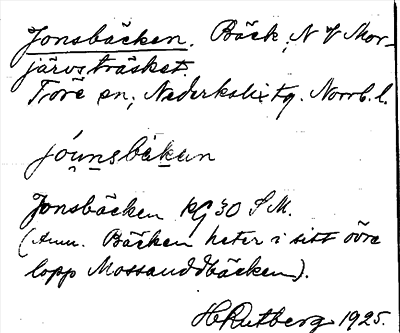 Jonsbäcken. Bäck, N of Mor-
järvsträsket.
Töre sn, Nederkalix tg. Norrb. l.
jóu̯nsbäkɐn
Jonsbäcken RG 30 S M.
(Anm. Bäcken heter i sitt övre
lopp Mossauddbäcken).
H Rutberg 1925.